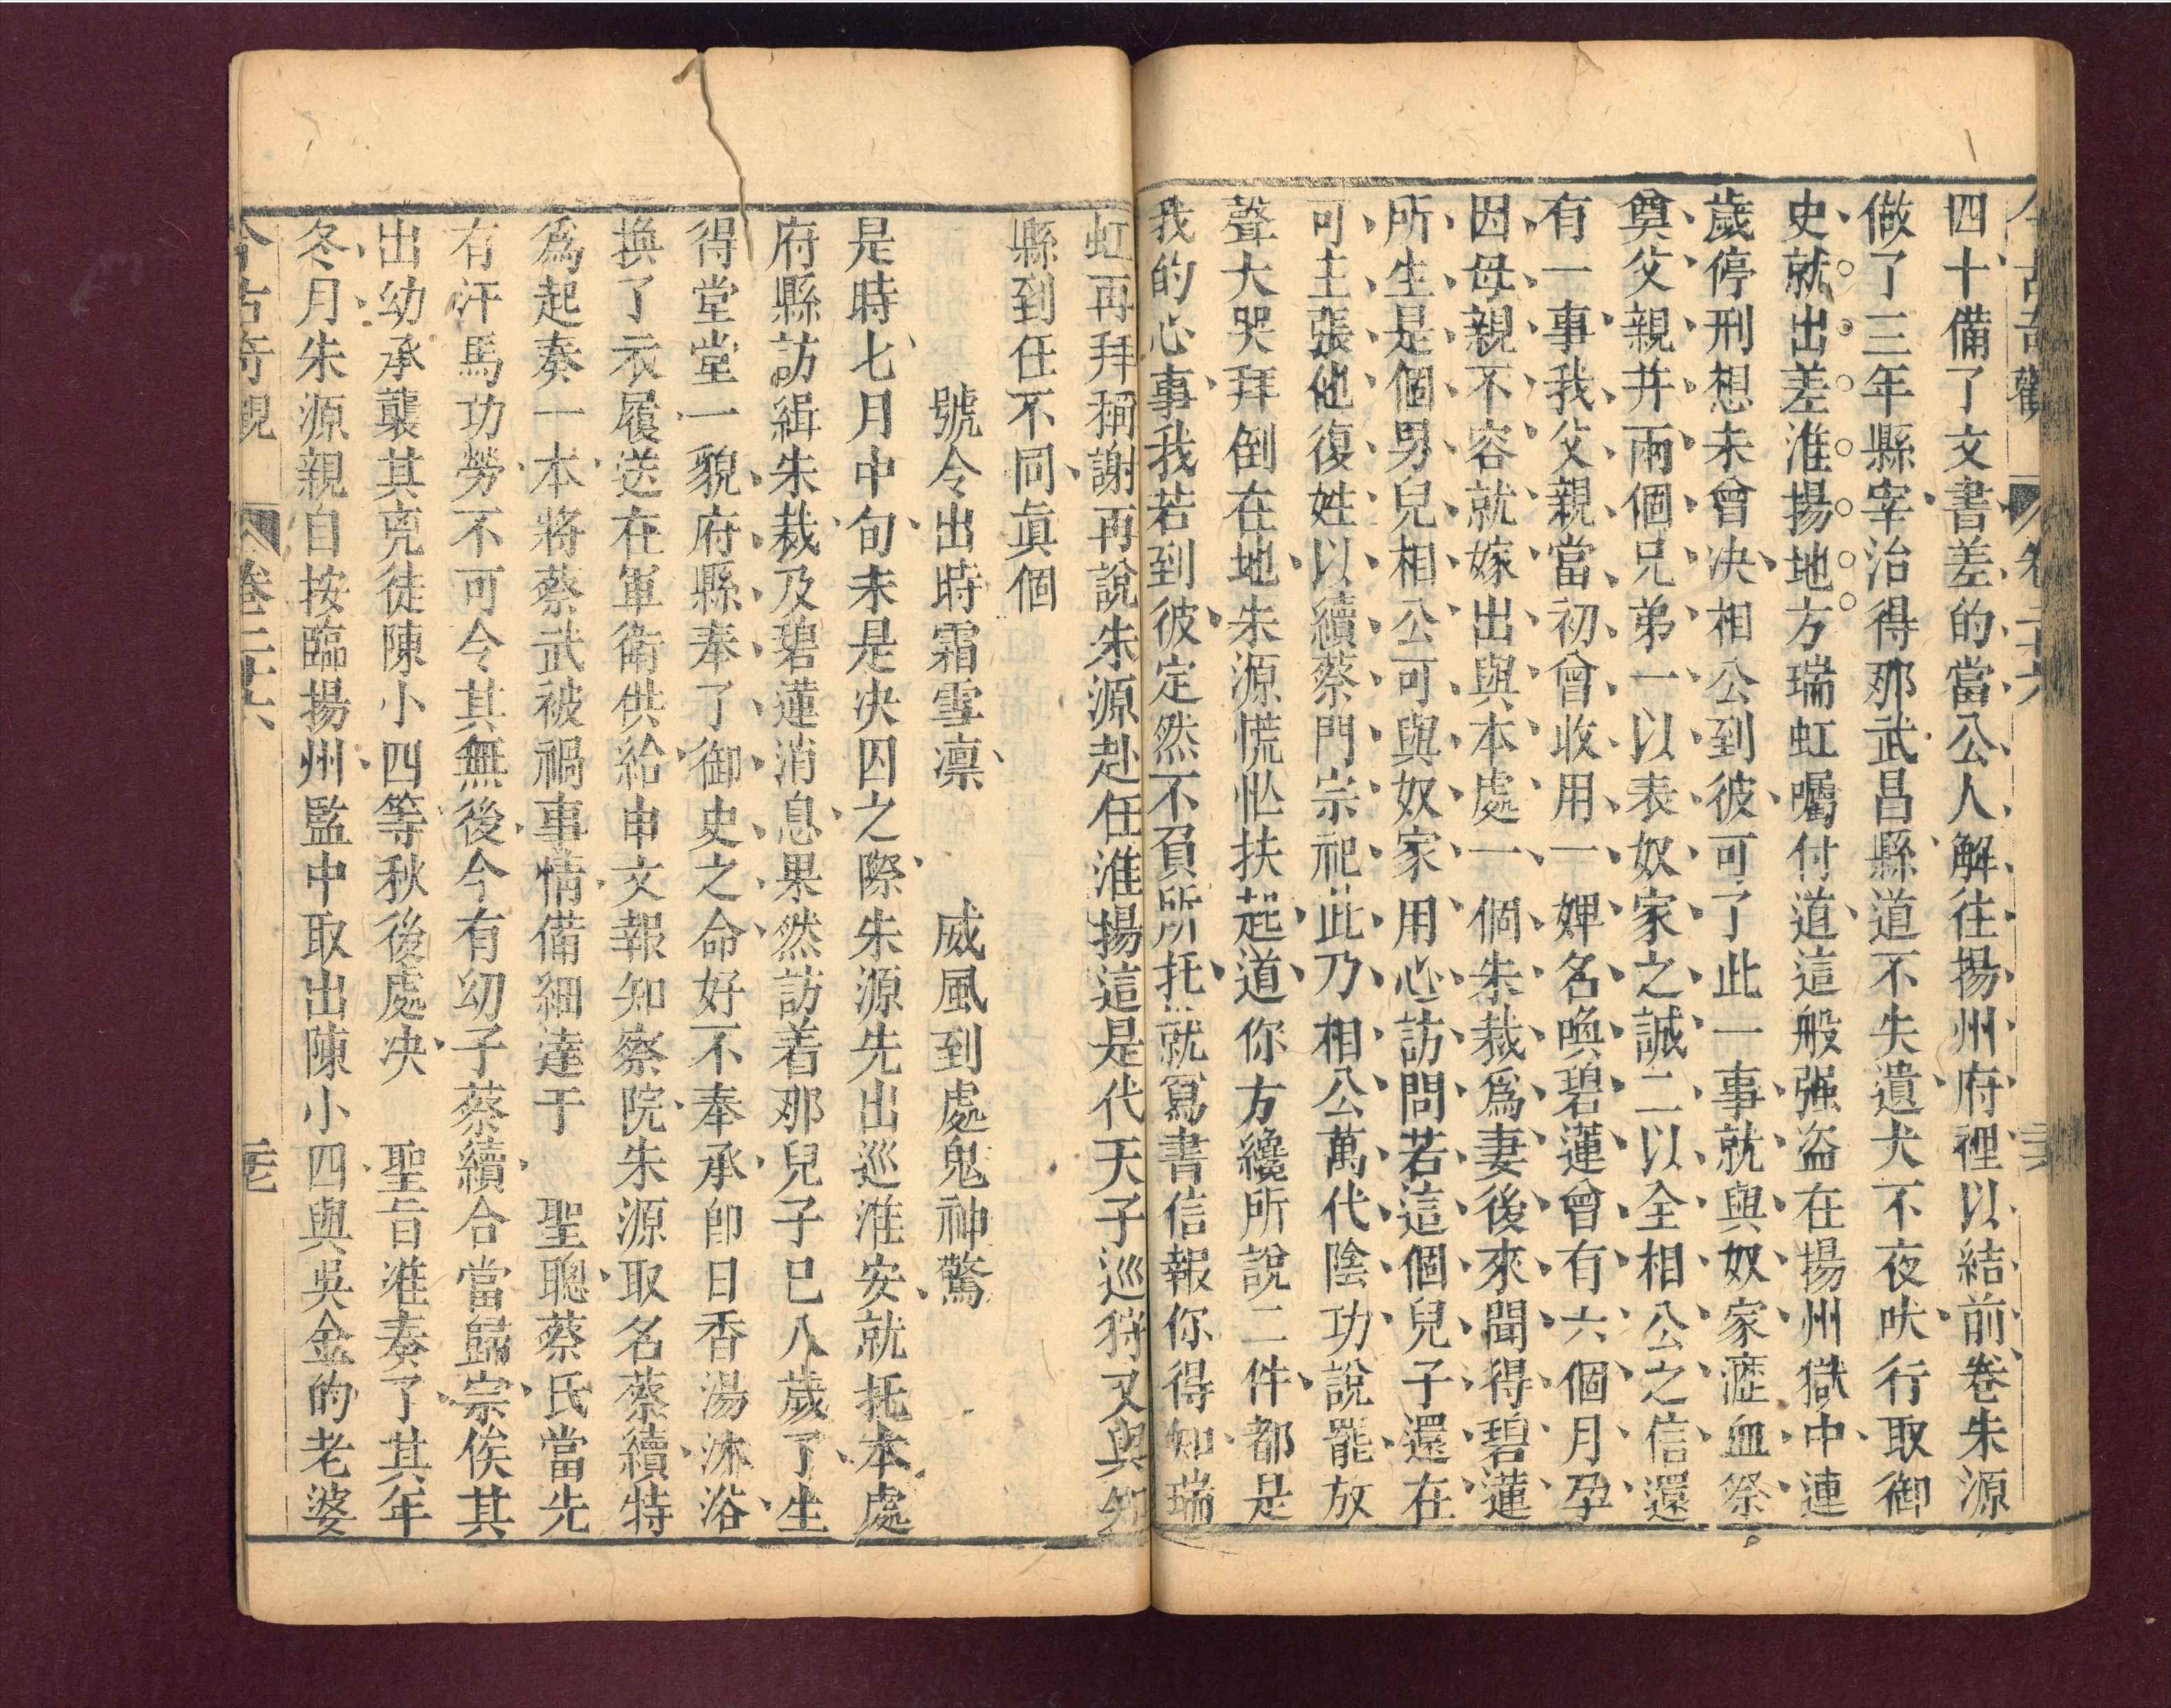 今古奇觀 卷二十六
四十備了文書差的當公人解往揚州府裡以結前卷朱源
做了三年縣宰治得那武昌縣道不失遺犬不夜吠行取御
史就出差淮揚地方瑞虹囑付道這般强盜在揚州獄中連
歲停刑想未曾决相公到彼可了此一事就與奴家瀝血祭
奠父親并兩個兄弟一以表奴家之誠二以全相公之信還
有一事我父親當初曾收用一婢名喚碧蓮曾有六個月孕
因母親不容就嫁出與本處一個朱裁爲妻後來聞得碧蓮
所生是個男兒相公可與奴家用心訪問若這個兒子還在
可主張他復姓以續蔡門宗祀此乃相公萬代陰功說罷放
聲大哭拜倒在地朱源慌忙扶起道你方纔所說二件都是
我的心事我若到彼定然不負所托就寫書信報你得知瑞
虹再拜稱謝再說朱源赴任淮揚這是代天子巡狩又與知
縣到任不同眞個
號令出時霜雪凛　威風到處鬼神驚
是時七月中旬未是决囚之際朱源先出巡淮安就托本處
府縣訪緝朱裁及碧蓮消息果然訪着那兒子已八歲了生
得堂堂一貌府縣奉了御史之命好不奉承卽日香湯沐浴
換了衣履送在軍衛供給申文報知察院朱源取名蔡續特
爲起奏一本將蔡武被禍事情備細達于　聖聰蔡氏當先
有汗馬功勞不可令其無後今有幼子蔡續合當歸宗俟其
出幼承襲其兇徒陳小四等秋後處决　聖旨准奏了其年
冬月朱源親自按臨揚州監中取出陳小四與吳金的老婆
今古奇觀 卷二十六